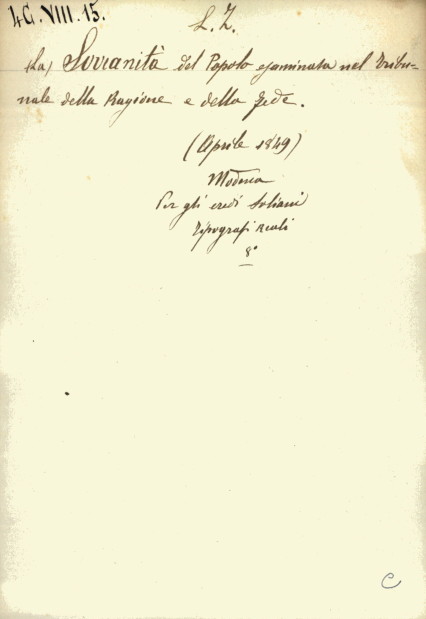 4G.VIII.15.
L. Z.
(La) Sovranità del Popolo esaminata nel Tribu-
nale della Ragione e della Fede.
(Aprile 1849)
Modena
Per gli eredi Soliani
Tipografi Reali
8°
C